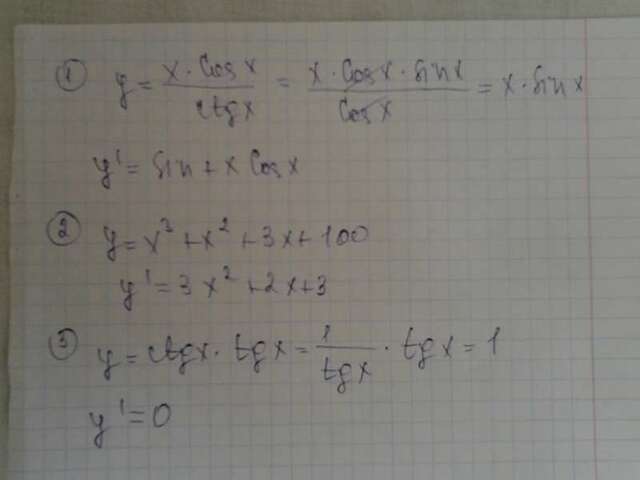 ① y = x · Cos x / ctg x = x · Cos x · Sin x / Cos x = x · Sin x
y' = Sin + x Cos x
② y = x³ + x² + 3x + 100
y' = 3x² + 2x + 3
③ y = ctgx · tgx = 1/tgx · tgx = 1
y' = 0